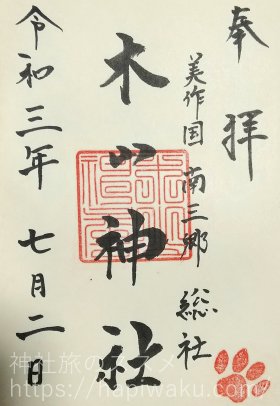 奉拝
美作国南三郷 総社
木山神社
令和三年 七月二日
神社旅のススメ
https://hapiwaku.com